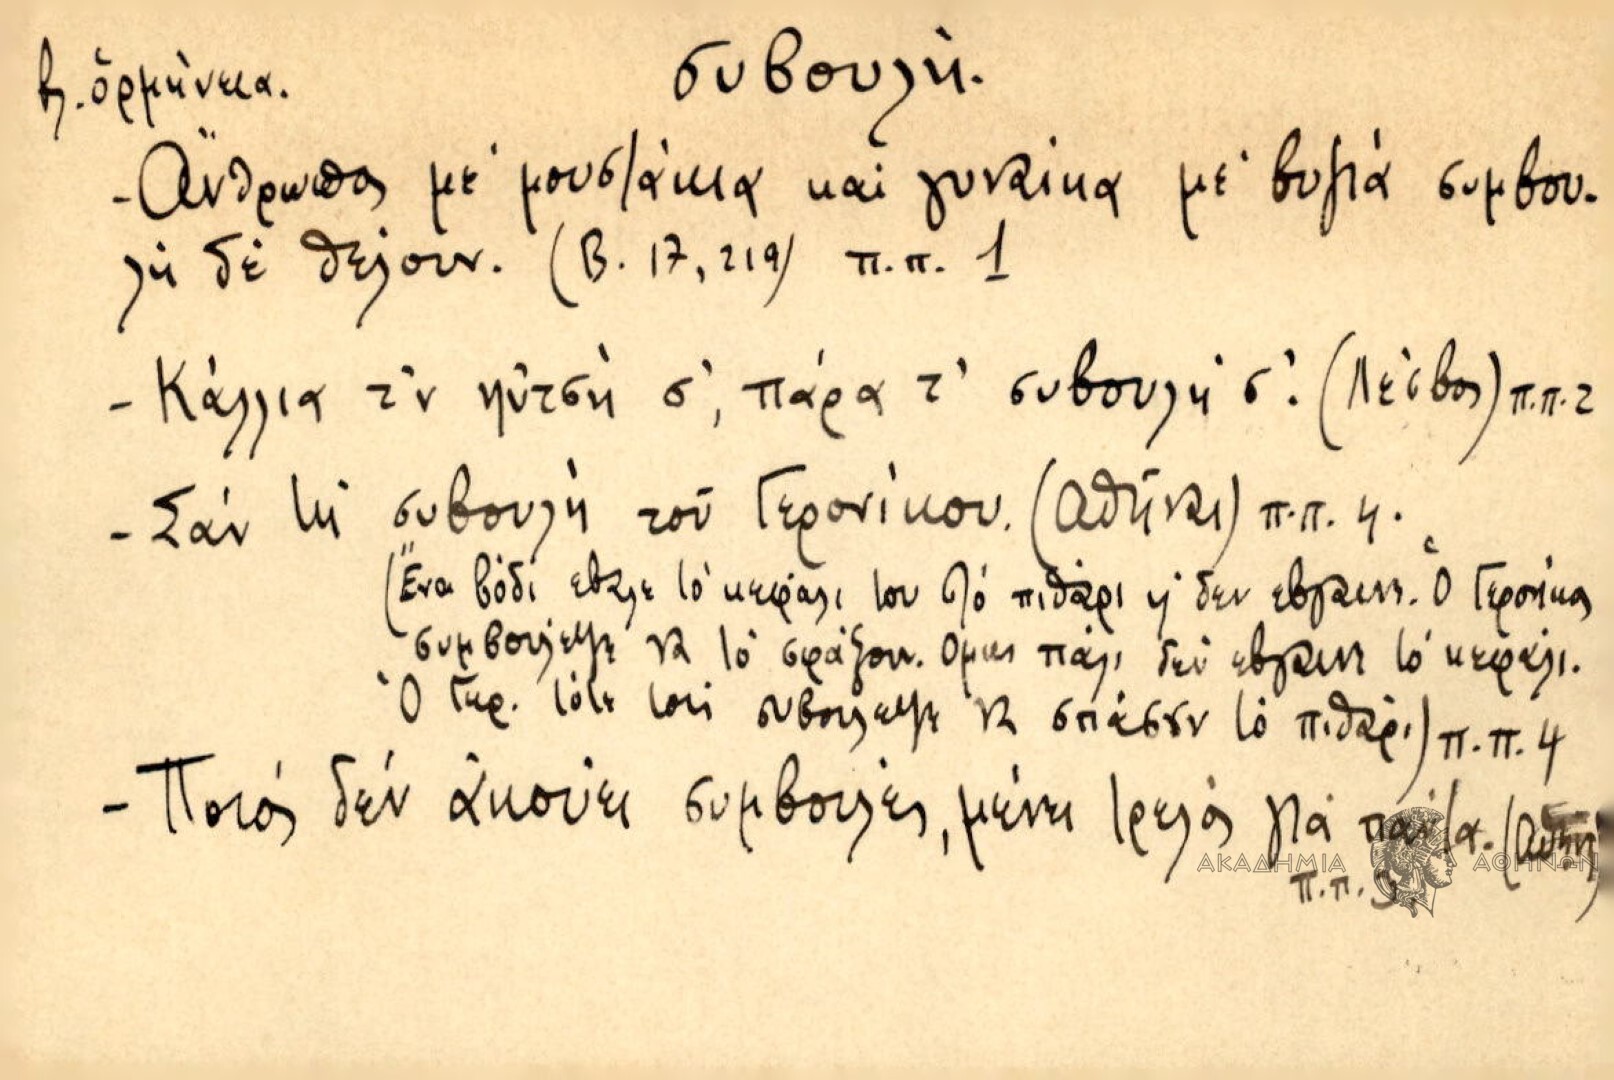 βλ. ὁρμήνεια.
συβουλή.
- Ἄνθρωπος μὲ μουστάκια καὶ γυναίκα μὲ βυζιά συμβου-
λή δὲ θέλουν. (Β. 17, 219) π.π. 1
- Κάλλια τ'ν πῦτσή σ', πάρα τ' συβουλή σ'. (Λέσβος) π.π. 2
- Σάν τή συβουλή τοῦ Γερονίκου. (Ἀθῆναι) π.π. 4.
(Ἕνα βόδι έβαλε τό κεφάλι του στό πιθάρι κ' δεν έβγαινε. Ὁ Γερονίκος
συμβούλεψε νά τό σφάξουν. Ομως πάλι δεν έβγαινε τό κεφάλι.
Ὁ Γερ. τότε τούς συβούλεψε νά σπάσουν τό πιθάρι) π.π. 4
- Ποιός δέν ἀκούει συμβουλές, μένει τρελός γιά πάντα. (Ἀθῆν)
π.π.
ΑΚΑΔΗΜΙΑ ΑΘΗΝΩΝ